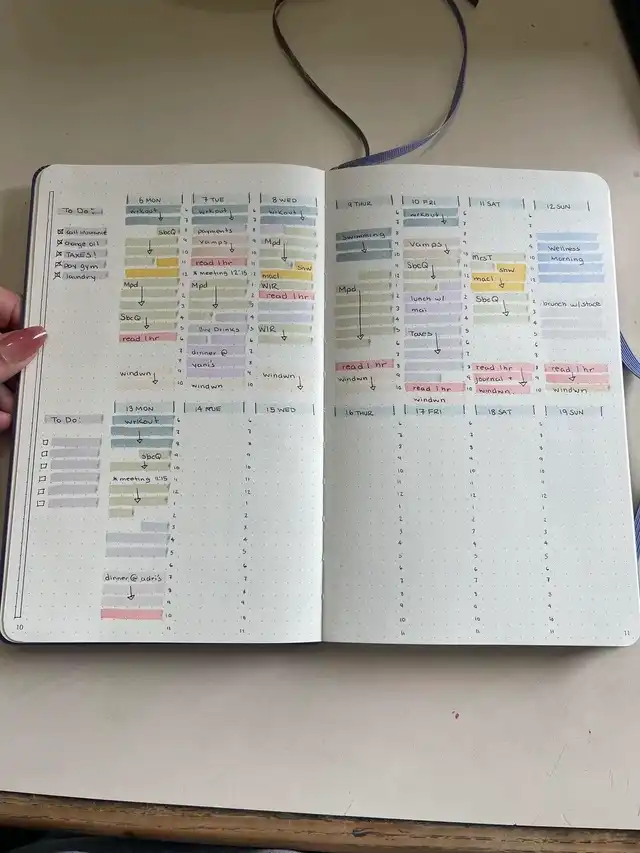 To Do:
call Mamame
change oil
TAXES!
pay gym
laundry
6 MON
wrkout
SbcQ
Mpd
SbcQ
read 1hr
windwn
7 TUE
wrkout
payments
vamps
read 1hr
* meeting 12:15
Mpd
Buy Drinks
dinner @
yani's
windwn
8 WED
wrkout
Mpd
shw
macl
WIR
read 1hr
WIR
windwn
9 THUR
Swimming
Mpd
read 1hr
windwn
10 FRI
wrkout
Vamps
SbcQ
lunch w/
mai
Taxes
read 1hr
windwn
11 SAT
McsT
shw
macl
SbcQ
read 1hr
journal +
windwn
12 SUN
Wellness
Morning
brunch w/
read 1hr
windwn
To Do:
13 MON
wrkout
sbcQ
* meeting 11:15
dinner @ adri's
14 TUE
15 WED
16 THUR
17 FRI
18 SAT
19 SUN
10
11